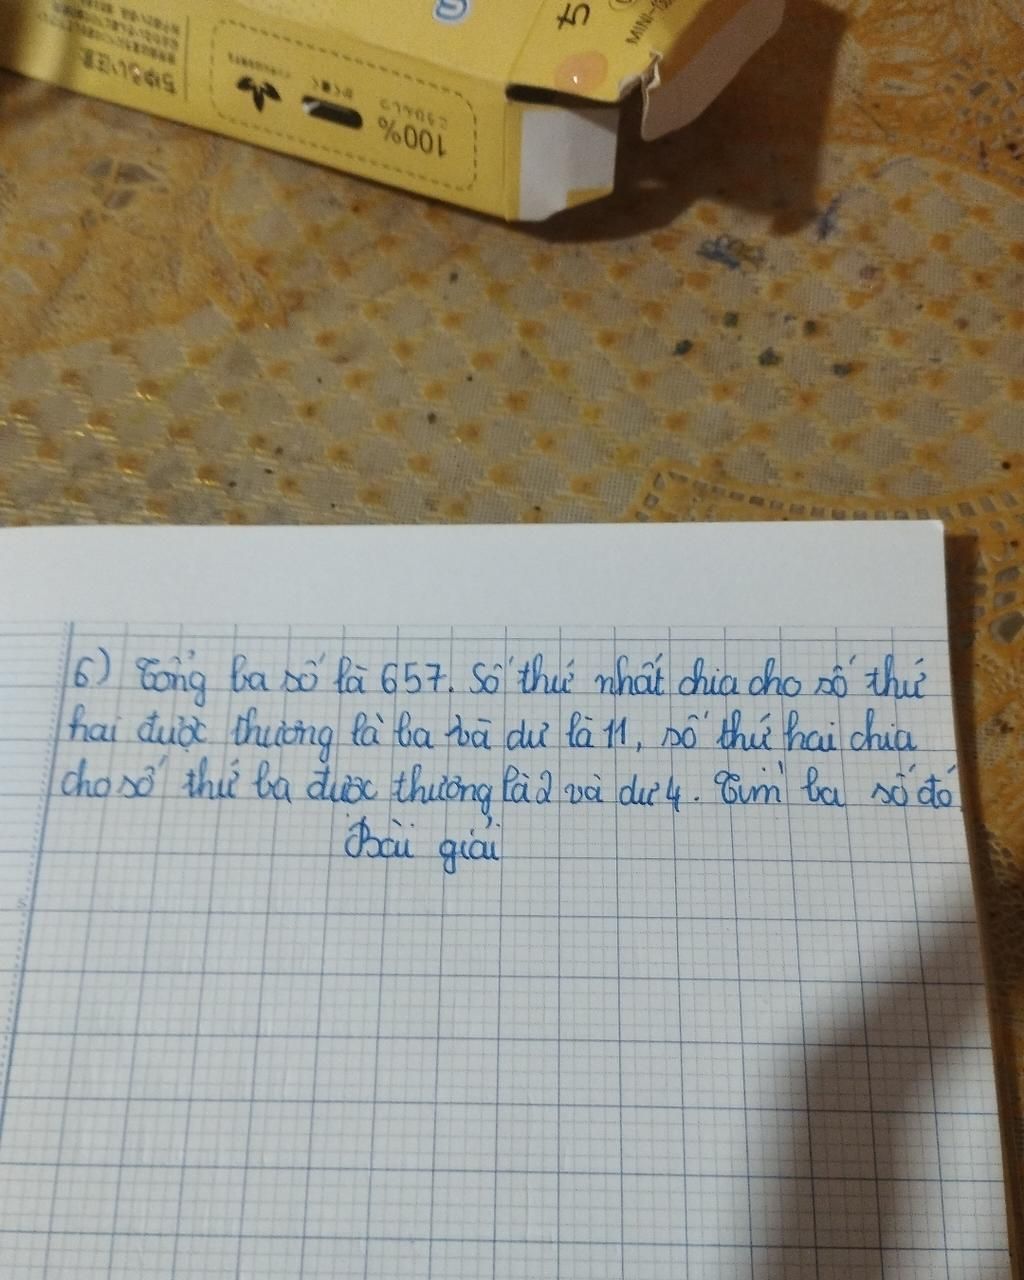 5
MINI-
100%
6) Tổng ba số là 657. Số thứ nhất chia cho số thứ
hai được thương là ba và dư là 11, số thứ hai chia
cho số thứ ba được thương là 2 và dư 4. Tìm ba số đó
Bài giải